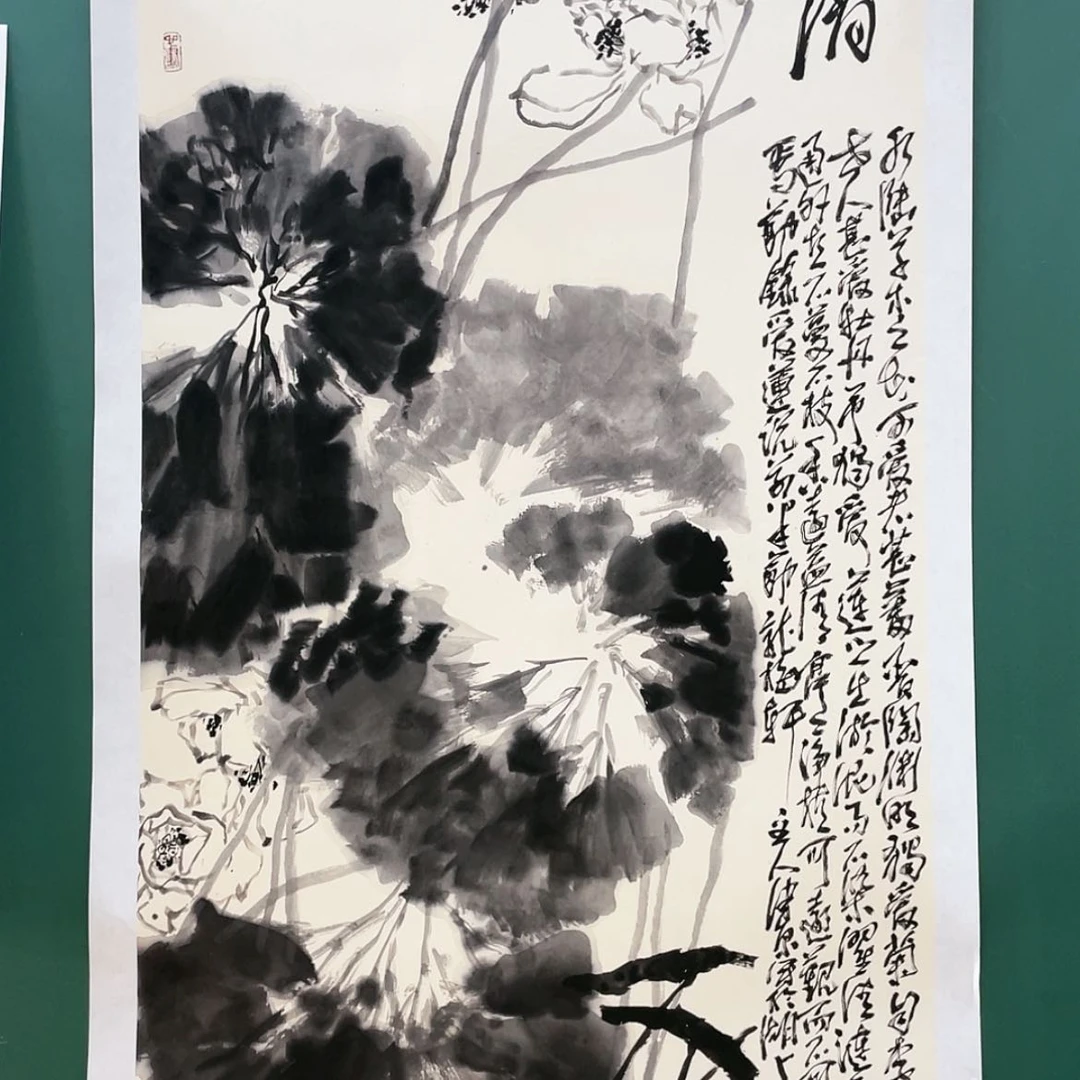 水陸草木之花可愛者甚蕃晉陶淵明獨愛菊自李
世人甚愛牡丹予獨愛蓮之出淤泥而不染濯清漣
通外直不蔓不枝香遠益清亭亭淨植可遠觀而不可
焉節錄愛蓮說龍梅軒主人寫於湖上